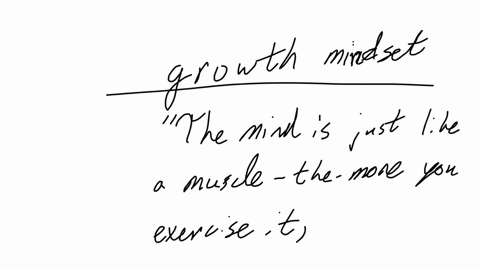 growth mindset
"The mind is just like
a muscle - the more you
exercise it,